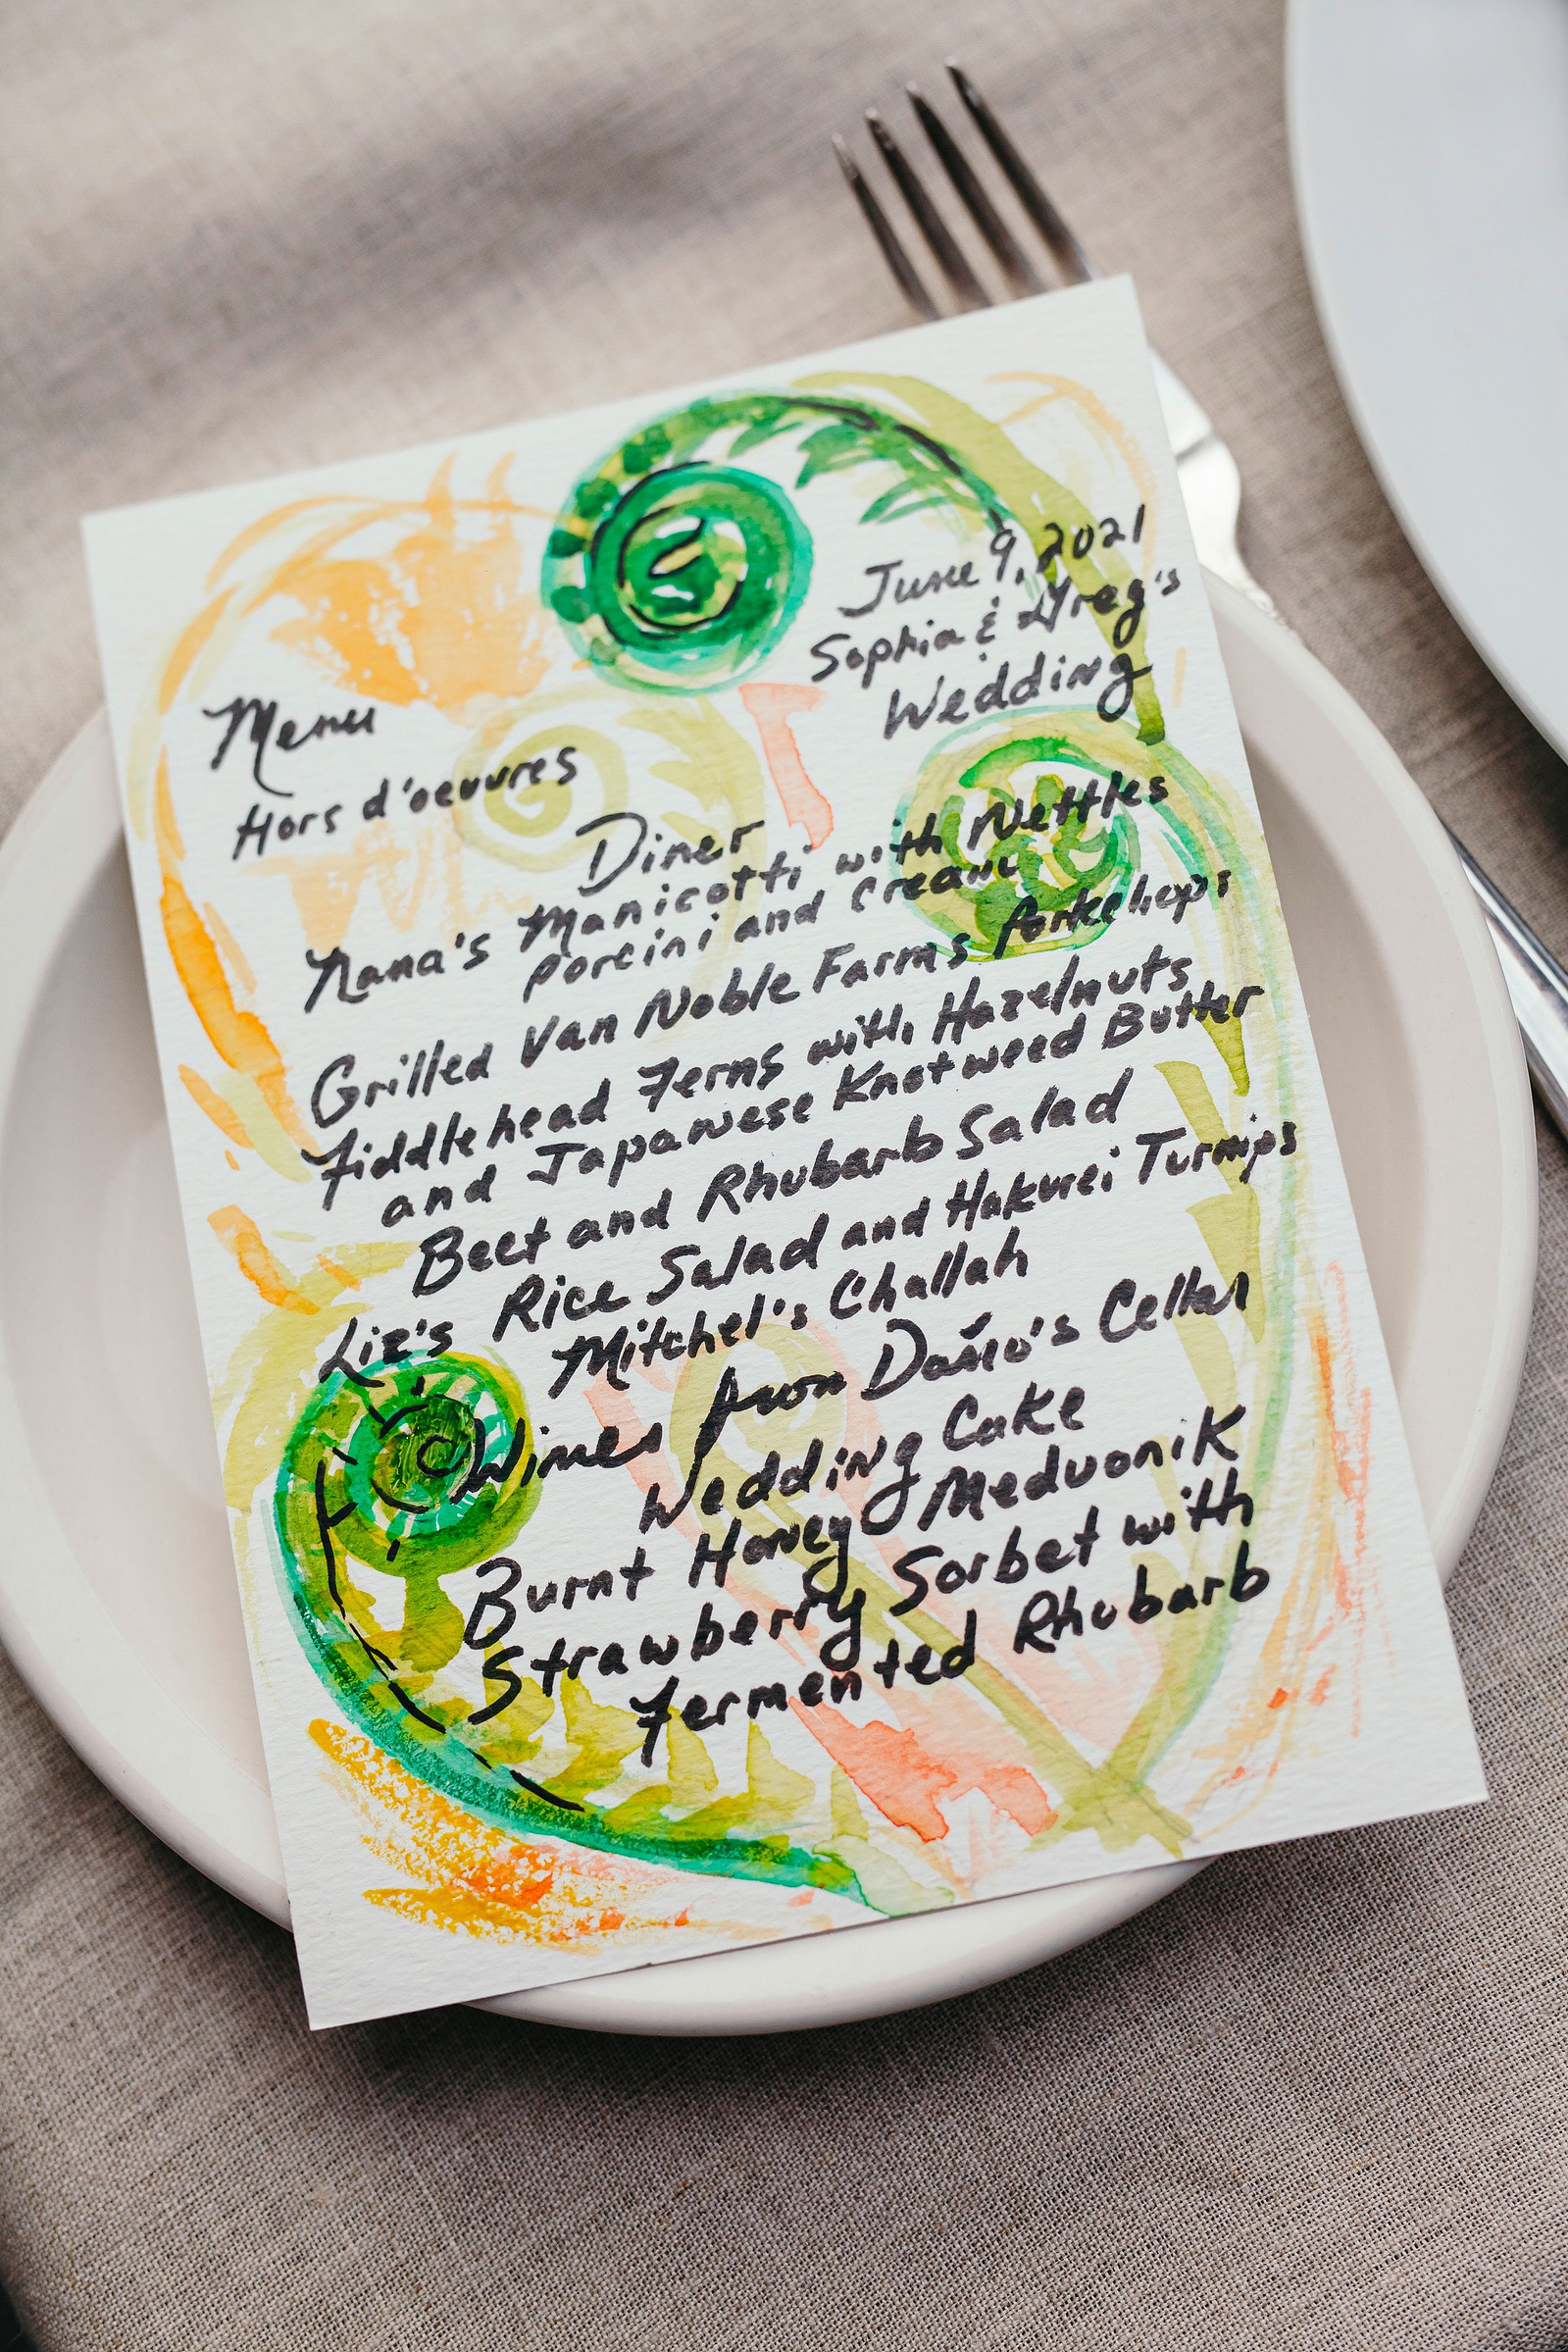 June 9, 2021
Sophia & Greg's
Wedding
Menu
Hors d'oeuvres
Diner
Nana's Manicotti with Nettles
porcini and cream
Grilled Van Noble Farms Porkchops
Fiddlehead Ferns with Hazelnuts
and Japanese Knotweed Butter
Beet and Rhubarb Salad
Liz's Rice Salad and Hakurei Turnips
Mitchel's Challah
Wines from Cellar
Wedding Cake
Burnt Honey Medvonik
Strawberry Sorbet with
Fermented Rhubarb